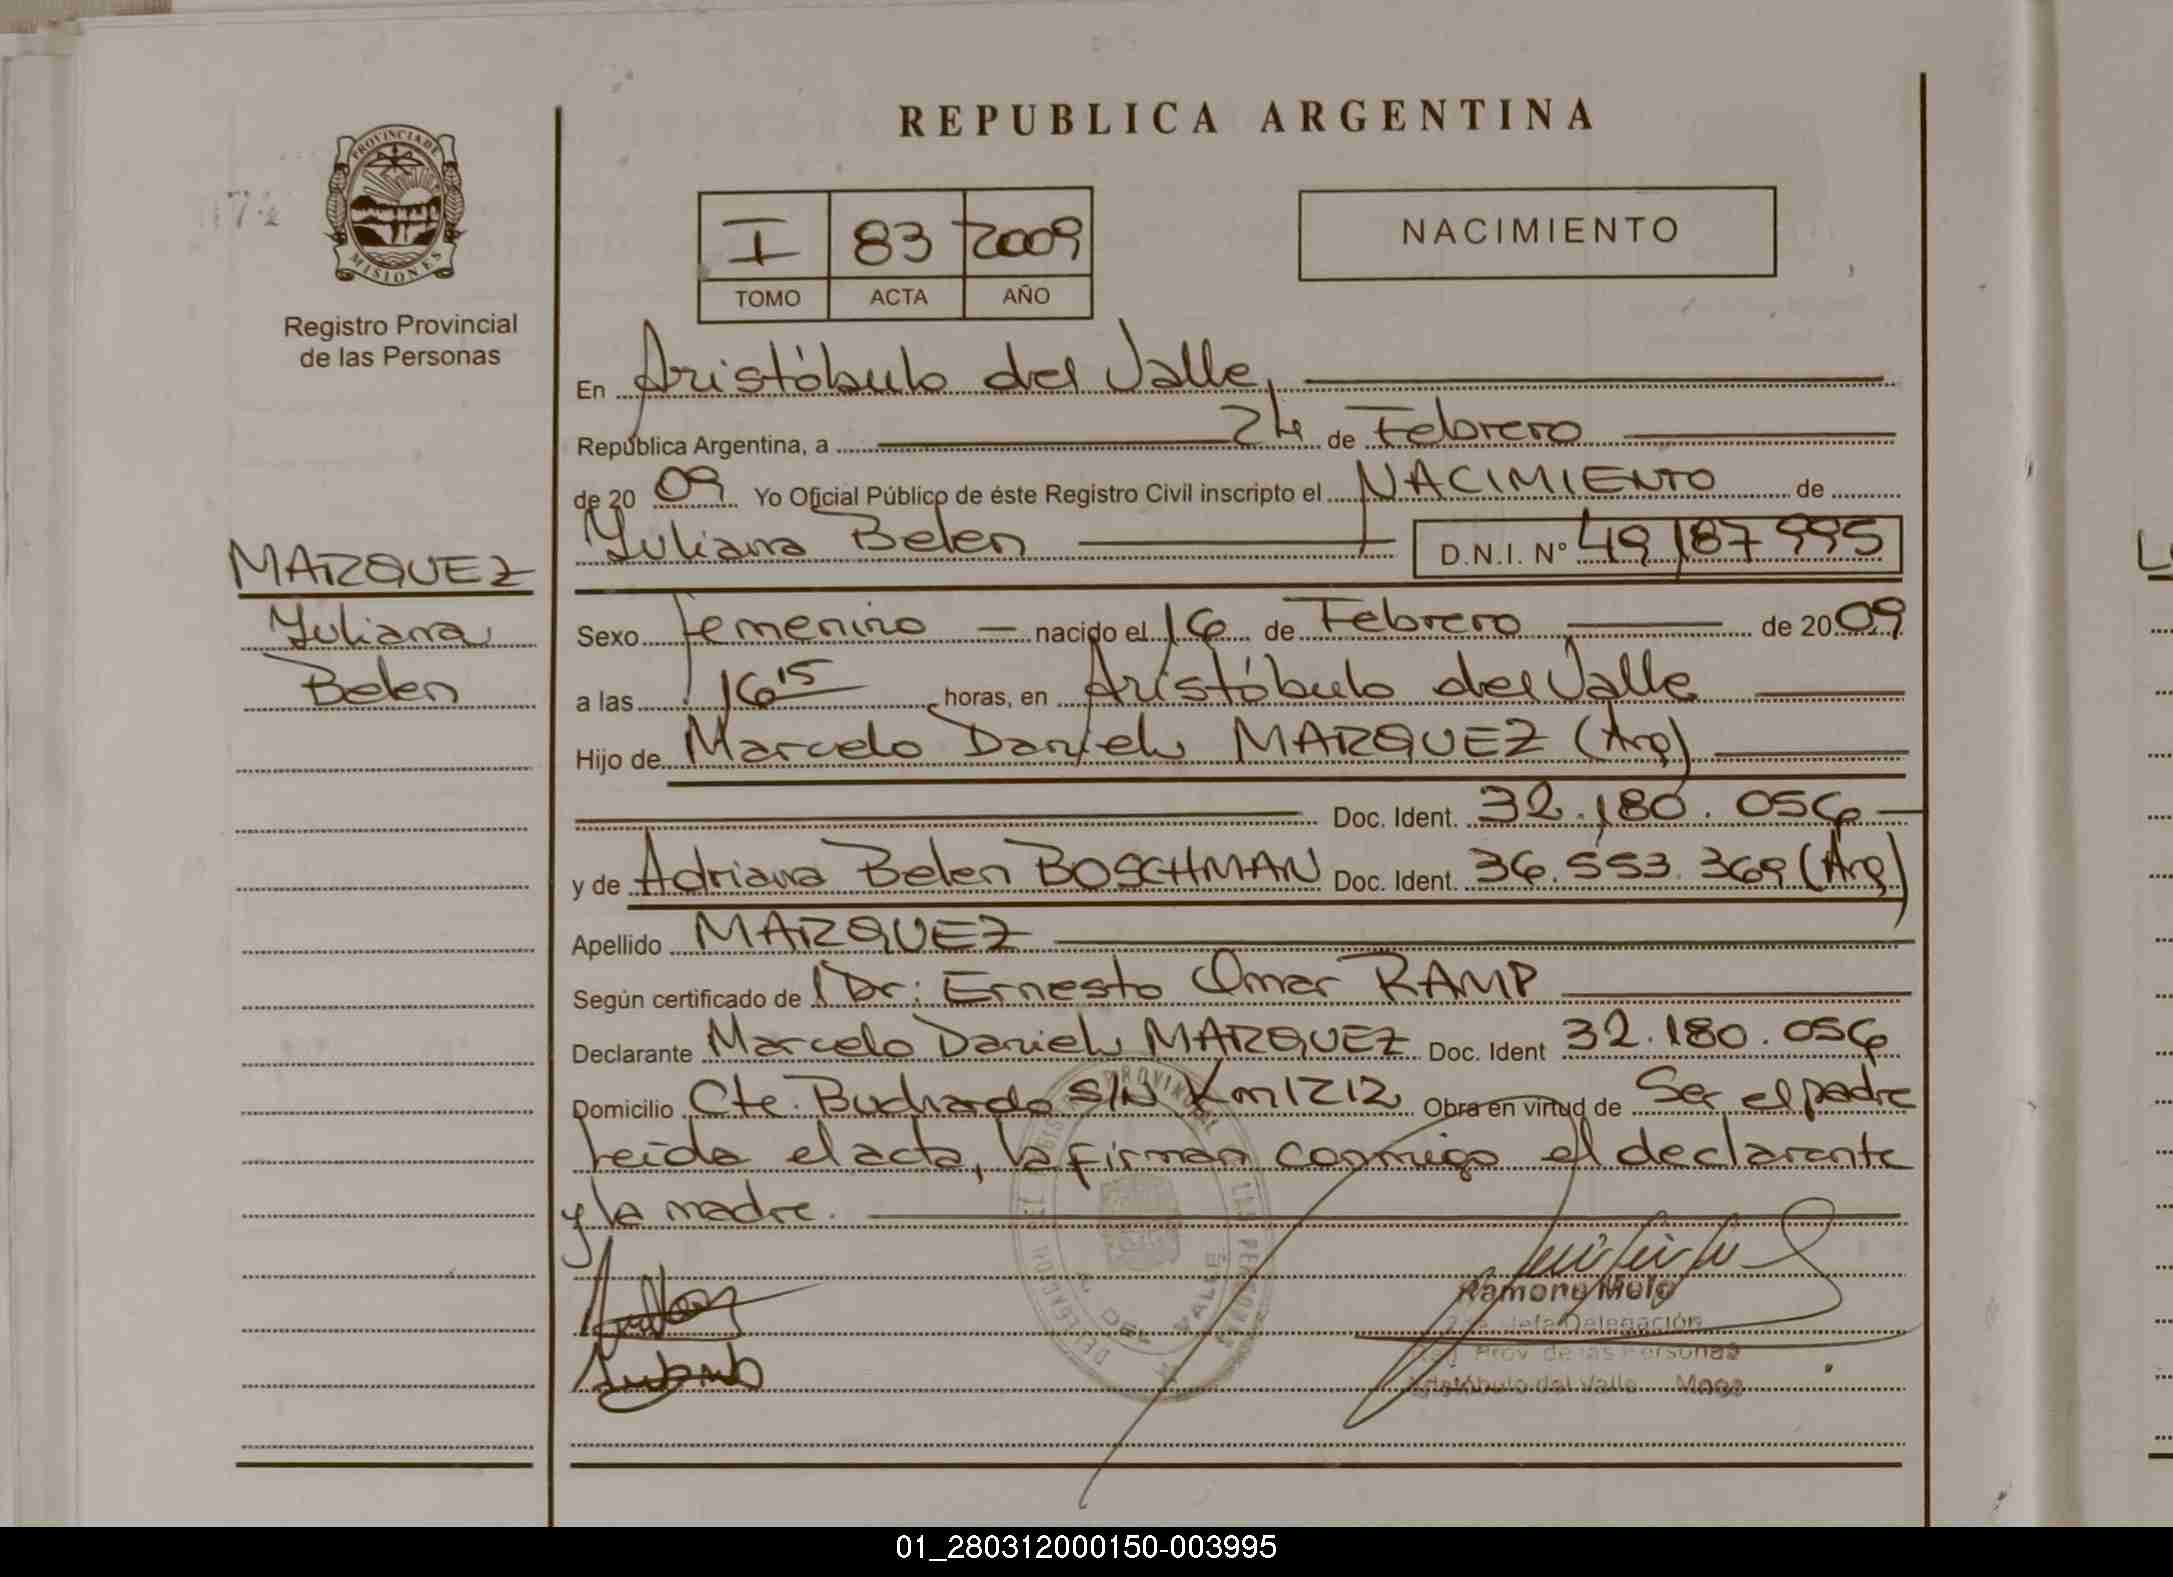 REPUBLICA ARGENTINA
PROVINCIA DE
MISIONES
Registro Provincial
de las Personas
I 83 2009
TOMO ACTA AÑO
NACIMIENTO
En Aristóbulo del Valle,
República Argentina, a 24 de Febrero
de 20 09 Yo Oficial Público de éste Registro Civil inscripto el NACIMIENTO de
Yuliana Belen D.N.I. Nº 49187995
MARQUEZ
Yuliana
Belen
Sexo femenino nacido el 16 de Febrero de 2009
a las 16 15 horas, en Aristóbulo del Valle
Hijo de Marcelo Daniel MARQUEZ (Arg)
Doc. Ident. 32.180.056
y de Adriana Belen BOSCHMAN Doc. Ident. 36.553.369 (Arg)
Apellido MARQUEZ
Según certificado de Dr: Ernesto Omar RAMP
Declarante Marcelo Daniel MARQUEZ Doc. Ident 32.180.056
Domicilio Cte. Buchardo S/N Km 1212 Obra en virtud de Ser el padre
Leida el acta, la firman conmigo el declarante
y la madre.
Jefa Delegación
Reg. Prov de las Personas
Aristóbulo del Valle Mnes
DEL VALLE
01_280312000150-003995